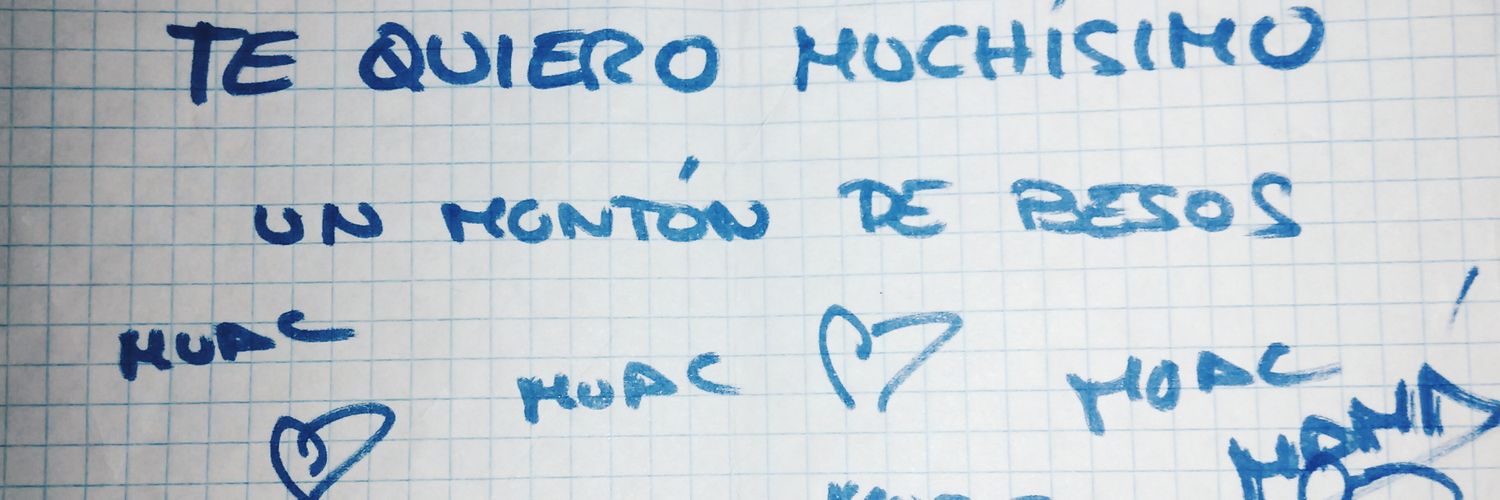 TE QUIERO MUCHÍSIMO
UN MONTÓN DE BESOS
MUAC
MUAC
MUAC
MAMÁ